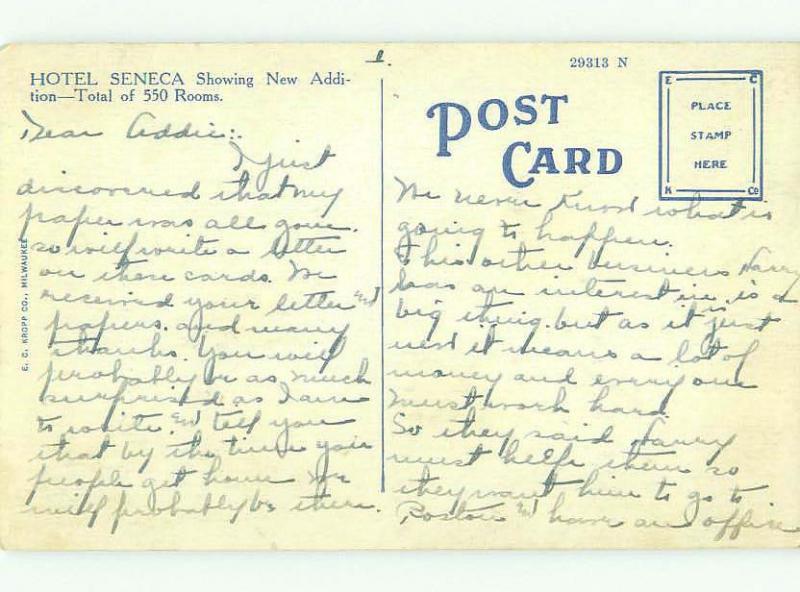 HOTEL SENECA Showing New Addi-
tion—Total of 550 Rooms.
Dear Addie:
I just
discovered that my
paper was all gone.
so will write a letter
on these cards. We
received your letter and
papers. and many
thanks. You will
probably be as much
surprised as I am
to write and tell you
that by the time your
people get home we
will probably be there.
E. C. KROPP CO., MILWAUKEE
1.
29313 N
POST
CARD
E C
PLACE
STAMP
HERE
K Co
We never know what is
going to happen.
This other business Harry
has an interest in is a
big thing. but as it is just
new it means a lot of
money and every one
must work hard
So they said Harry
must help them so
they want him to go to
Boston and have an office